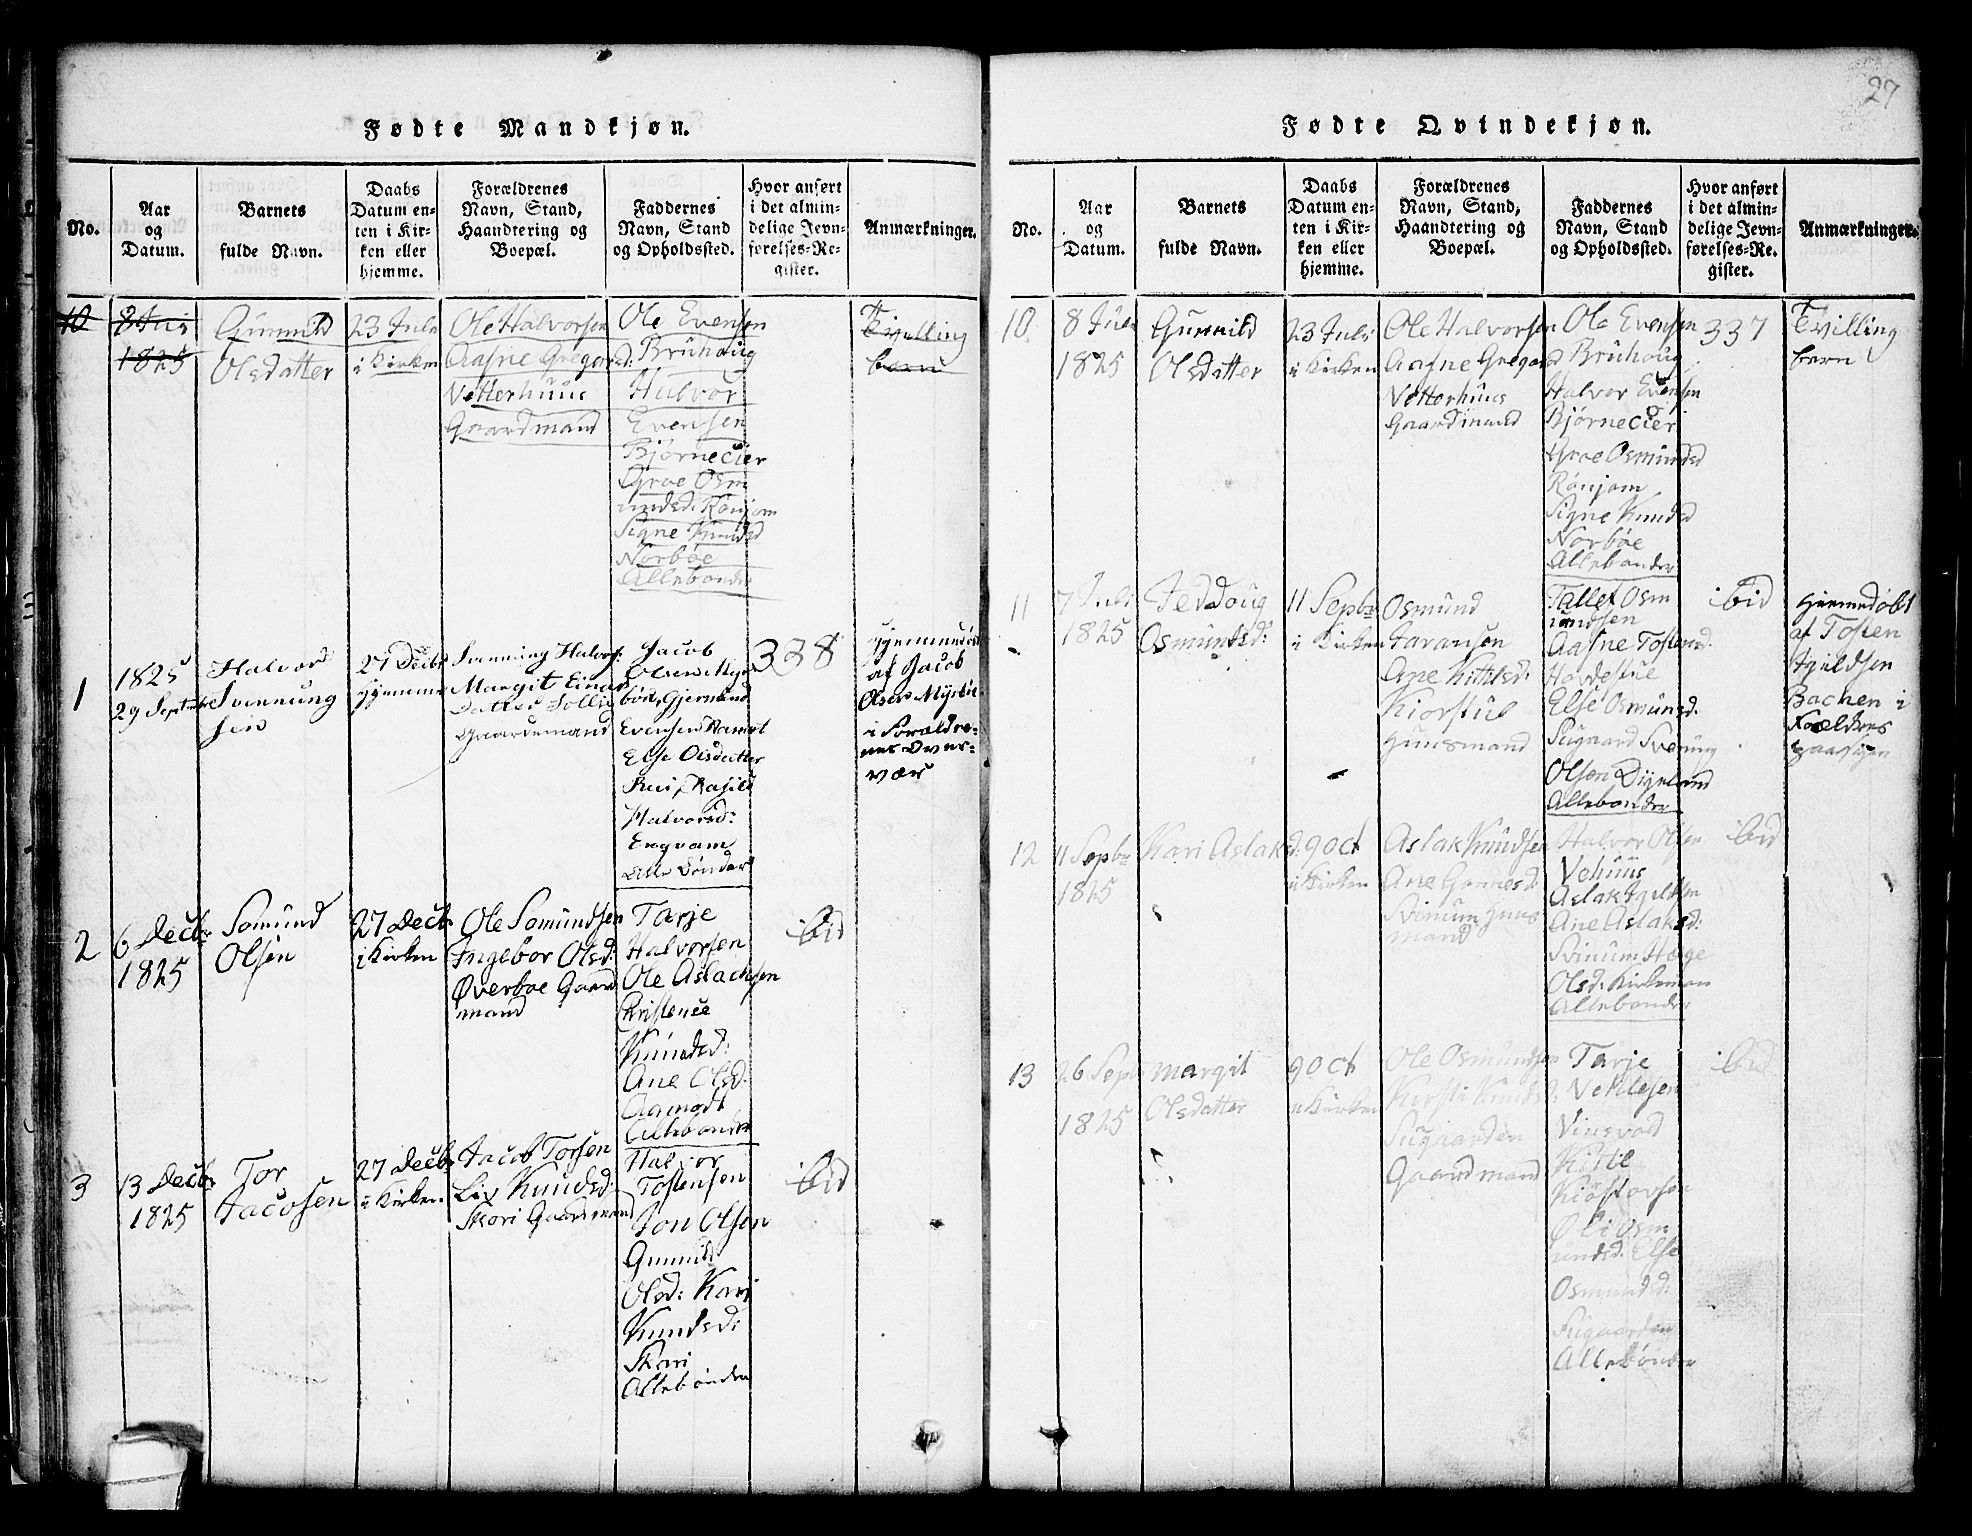 27
Fødte Mandkjøn.
No.
Aar
og
Datum.
Barnets
fulde Navn.
Daabs
Datum en-
ten i Kir-
ken eller
hjemme.
Forældrenes
Navn, Stand,
Haandtering og
Boepæl.
Faddernes
Navn, Stand
og Opholdssted.
Hvor anført
i det almin-
delige Jevn-
førelses-Re-
gister.
Anmærkninger.
10
8 Juli
1825
Gunnild
Olsdatter
23 Juli
i Kirken
Ole Halvorsen
Aasne Gregard
Vetterhuus
Gaardmand
Ole Evensen
Bruhoug
Halvor
Evensen
Bjørnecier
Groe Osm
undsd: Rønjom
Signe Knudsd
Norbøe
Allebønder
Tvilling
barn
1
1825
29 Septbr
Halvord
Svennung
sen
27 Decbr
hjemme
Svenning Halvors:
Margit Einar
Datter Sollie
Gaardemand
Jacob
Olsen Myr
bøe, Gjermund
Evensen
Else Olsdatter
Halvorsd:
Engvam
Alle Bønder
338
Hjemmedøbt
af Jacob
Olsen Myrbøe
i Forældre-
nes Over-
vær
2
6 Decbr
1825
Somund
Olsen
27 Decbr
i Kirken
Ole Somundsen
Ingebor Olsd:
Øverbøe Gaard
mand
Tarje
Halvorsen
Ole Aslachsen
Christence
Knudsd:
Ane Olsd:
Aamodt
Allebønder
ibid
3
13 Decbr
1825
Tor
Jacosen
27 Decbr
i Kirken
Jacob Torsen
Liv Knudsd:
Skori Gaardmand
Halvor
Tostensen
Jon Olsen
Gunnild
Olsd: Kari
Knudsd:
Skori
Allebønder
ibid
Fødte Qvindekjøn.
No.
Aar
og
Datum.
Barnets
fulde Navn.
Daabs
Datum en-
ten i Kir-
ken eller
hjemme.
Forældrenes
Navn, Stand,
Haandtering og
Boepæl.
Faddernes
Navn, Stand
og Opholdssted.
Hvor anført
i det almin-
delige Jevn-
førelses-Re-
gister.
Anmærkninger.
10
8 Juli
1825
Gunnild
Olsdatter
23 Juli
i Kirken
Ole Halvorsen
Aasne Gregard
Vetterhuus
Gaardmand
Ole Evensen
Bruhoug
Halvor Evensen
Bjørnecier
Groe Osmundsd
Rønjom
Signe Knudsd
Norbøe
Allebønder
337
Tvilling
barn
11
7 Juli
1825
Osmundsd:
11 Sepbr
i Kirken
Osmund
Ane Kittilsd:
Kiorstul
Huusmand
Tallef Osm
undsen
Aasne Tostensd.
Hovdestue
Else Osmundsd.
Sugaard Svenung
Olsen
Allebønder
ibid
Hjemmedøbt
af Tosten
Kjeldsen
Bachen i
12
11 Sepbr
1825
Kari Aslaksd:
9 Oct
i Kirken
Aslak Knudsen
Ane Gonnesd:
Svinum Huus
mand
Halvor Olsen
Vehuus
Aslak
Ane Aslaksd:
Svinum Hæge
Olsd: Kirkemoen
Allebønder
ibid
13
26 Sepbr
1825
Margit
Olsdatter
9 Oct
i Kirken
Ole Osmundsen
Kersti Knudsd:
Sugaarden
Gaardmand
Tarje
Vetlesen
Vinsvold
Kittil
Osm
undsd: Else
Osmundsd:
Sugaarden
Allebønder
ibid